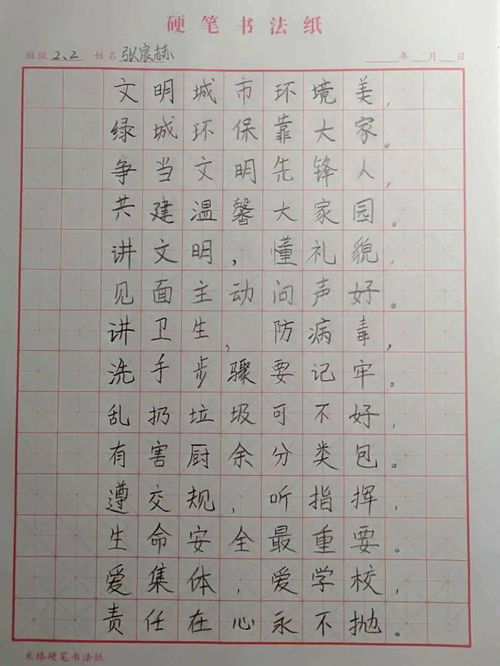 硬笔书法纸
班级 2、2 姓名 张宸赫 年 月 日
文明城市环境美,
绿城环保靠大家。
争当文明先锋人,
共建温馨大家园。
讲文明,懂礼貌,
见面主动问声好。
讲卫生,防病毒,
洗手步骤要记牢。
乱扔垃圾可不好,
有害厨余分类包。
遵交规,听指挥,
生命安全最重要。
爱集体,爱学校,
责任在心永不抛。
米格硬笔书法纸